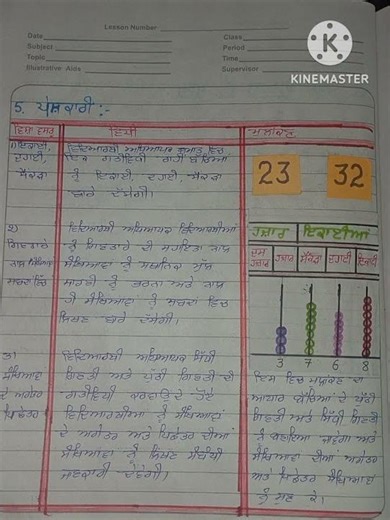 Lesson Number
Date
Class
Subject
Period
Topic
Time
Illustrative Aids
Supervisor
KINEMASTER
5. ਪੇਸ਼ਕਾਰੀ :-
ਵਿਧੀ
1) ਇਕਾਈ,
ਦਹਾਈ,
ਸੈਂਕੜਾ
ਵਿਦਿਆਰਥੀ ਅਧਿਆਪਕ
ਇਕ ਗਤੀਵਿਧੀ ਰਾਹੀਂ ਬੱਚਿਆਂ
ਨੂੰ ਇਕਾਈ, ਦਹਾਈ, ਸੈਂਕੜਾ
ਬਾਰੇ ਦੱਸੇਗੀ।
23
32
2)
ਗਿਣਤਾਰੇ
ਵਿਦਿਆਰਥੀ ਅਧਿਆਪਕ ਵਿਦਿਆਰਥੀਆਂ
ਨੂੰ ਗਿਣਤਾਰੇ ਦੀ ਸਹਾਇਤਾ ਨਾਲ
ਸੰਖਿਆਵਾਂ ਨੂੰ ਸਥਾਨਿਕ ਮੁੱਲ
ਸਾਰਣੀ ਨੂੰ ਭਰਨਾ ਅਤੇ ਨਾਲ
ਹੀ ਸੰਖਿਆਵਾਂ ਨੂੰ ਸ਼ਬਦਾਂ ਵਿਚ
ਲਿਖਣ ਬਾਰੇ ਦੱਸੇਗੀ।
ਹਜ਼ਾਰ ਇਕਾਈਆਂ
ਦਸ ਹਜ਼ਾਰ
ਹਜ਼ਾਰ
ਸੈਂਕੜਾ
ਦਹਾਈ
ਇਕਾਈ
3 7 6 8
3)
ਸੰਖਿਆਵਾਂ
ਦੇ ਅਗੇਤਰ
ਪਿਛੇਤਰ
ਵਿਦਿਆਰਥੀ ਅਧਿਆਪਕ ਸਿੱਧੀ
ਗਿਣਤੀ ਅਤੇ ਪੁੱਠੀ ਗਿਣਤੀ ਦੀ
ਗਤੀਵਿਧੀ ਕਰਵਾਉਂਦੇ ਹੋਏ
ਵਿਦਿਆਰਥੀਆਂ ਨੂੰ ਸੰਖਿਆਵਾਂ
ਦੇ ਅਗੇਤਰ ਅਤੇ ਪਿਛੇਤਰ ਦੀਆਂ
ਸੰਖਿਆਵਾਂ ਨੂੰ ਲਿਖਣ ਸੰਬੰਧੀ
ਜਾਣਕਾਰੀ ਦੇਵੇਗੀ।
ਇਸ ਵਿਚ ਮੁਲਾਂਕਣ ਦਾ
ਆਧਾਰ ਬੱਚਿਆਂ ਦੇ ਪੁੱਠੀ
ਗਿਣਤੀ ਅਤੇ ਸਿੱਧੀ ਗਿਣਤੀ
ਨੂੰ ਬਣਾਇਆ ਜਾਵੇਗਾ ਅਤੇ
ਸੰਖਿਆਵਾਂ ਦੀਆਂ ਅਗੇਤਰ
ਅਤੇ ਪਿਛੇਤਰ ਸੰਖਿਆਵਾਂ
ਨੂੰ ਸੁਣ ਕੇ।